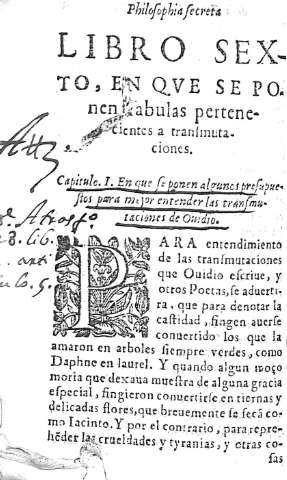 Philosophia secreta
LIBRO SEX-
TO, EN QVE SE PO-
nen fabulas pertene-
cientes a transmuta-
ciones.
Capitulo. I. En que se ponen algunos presupue-
stos para mejor entender las transmu-
taciones de Ouidio.
PARA entendimiento
de las transmutaciones
que Ouidio escriue, y
otros Poetas, se aduerti-
ra, que para denotar la
castidad, fingen auerse
conuertido los que la
amaron en arboles siempre verdes, como
Daphne en laurel. Y quando algun moço
moria que dexaua muestra de alguna gracia
especial, fingieron conuertirse en tiernas y
delicadas flores, que breuemente se secā co-
mo Iacinto. Y por el contrario, para repre-
hēder las crueldades y tyranias, y otras co-
sas